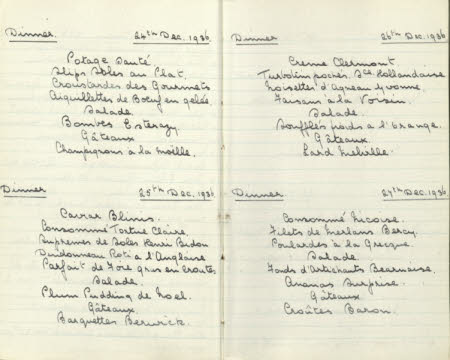 Dinner. 24th Dec. 1936
Potage Santé
Slips Soles au Plat.
Croustardes des Gourmets
Aiguillettes de Bœuf en gelée.
Salade.
Bombes Esterazy
Gâteaux.
Champignons à la moëlle.
Dinner 25th Dec. 1936
Caviar Blinis.
Consommé Tortue Claire.
Supremes de Soles Henri Bidou
Dindonneau Roti a l'Anglaise
Parfait de Foie gras en croûtes
Salade.
Plum Pudding de Noel.
Gâteaux.
Barquettes Berwick.
Dinner. 26th Dec. 1936
Creme Clermont
Turbotins pochés. Sce. Hollandaise
Noisettes d'Agneau Yvonne.
Faisans à la Voisin
Salade.
Soufflés froids a l'Orange.
Gâteaux.
Lard Melville.
Dinner. 27th Dec. 1936
Consommé Nicoise.
Filets de Merlans Bercy.
Poulardes à la Grecque.
Salade
Fonds d'Artichauts Bearnaise.
Ananas Surprise.
Gâteaux
Croûtes Baron.